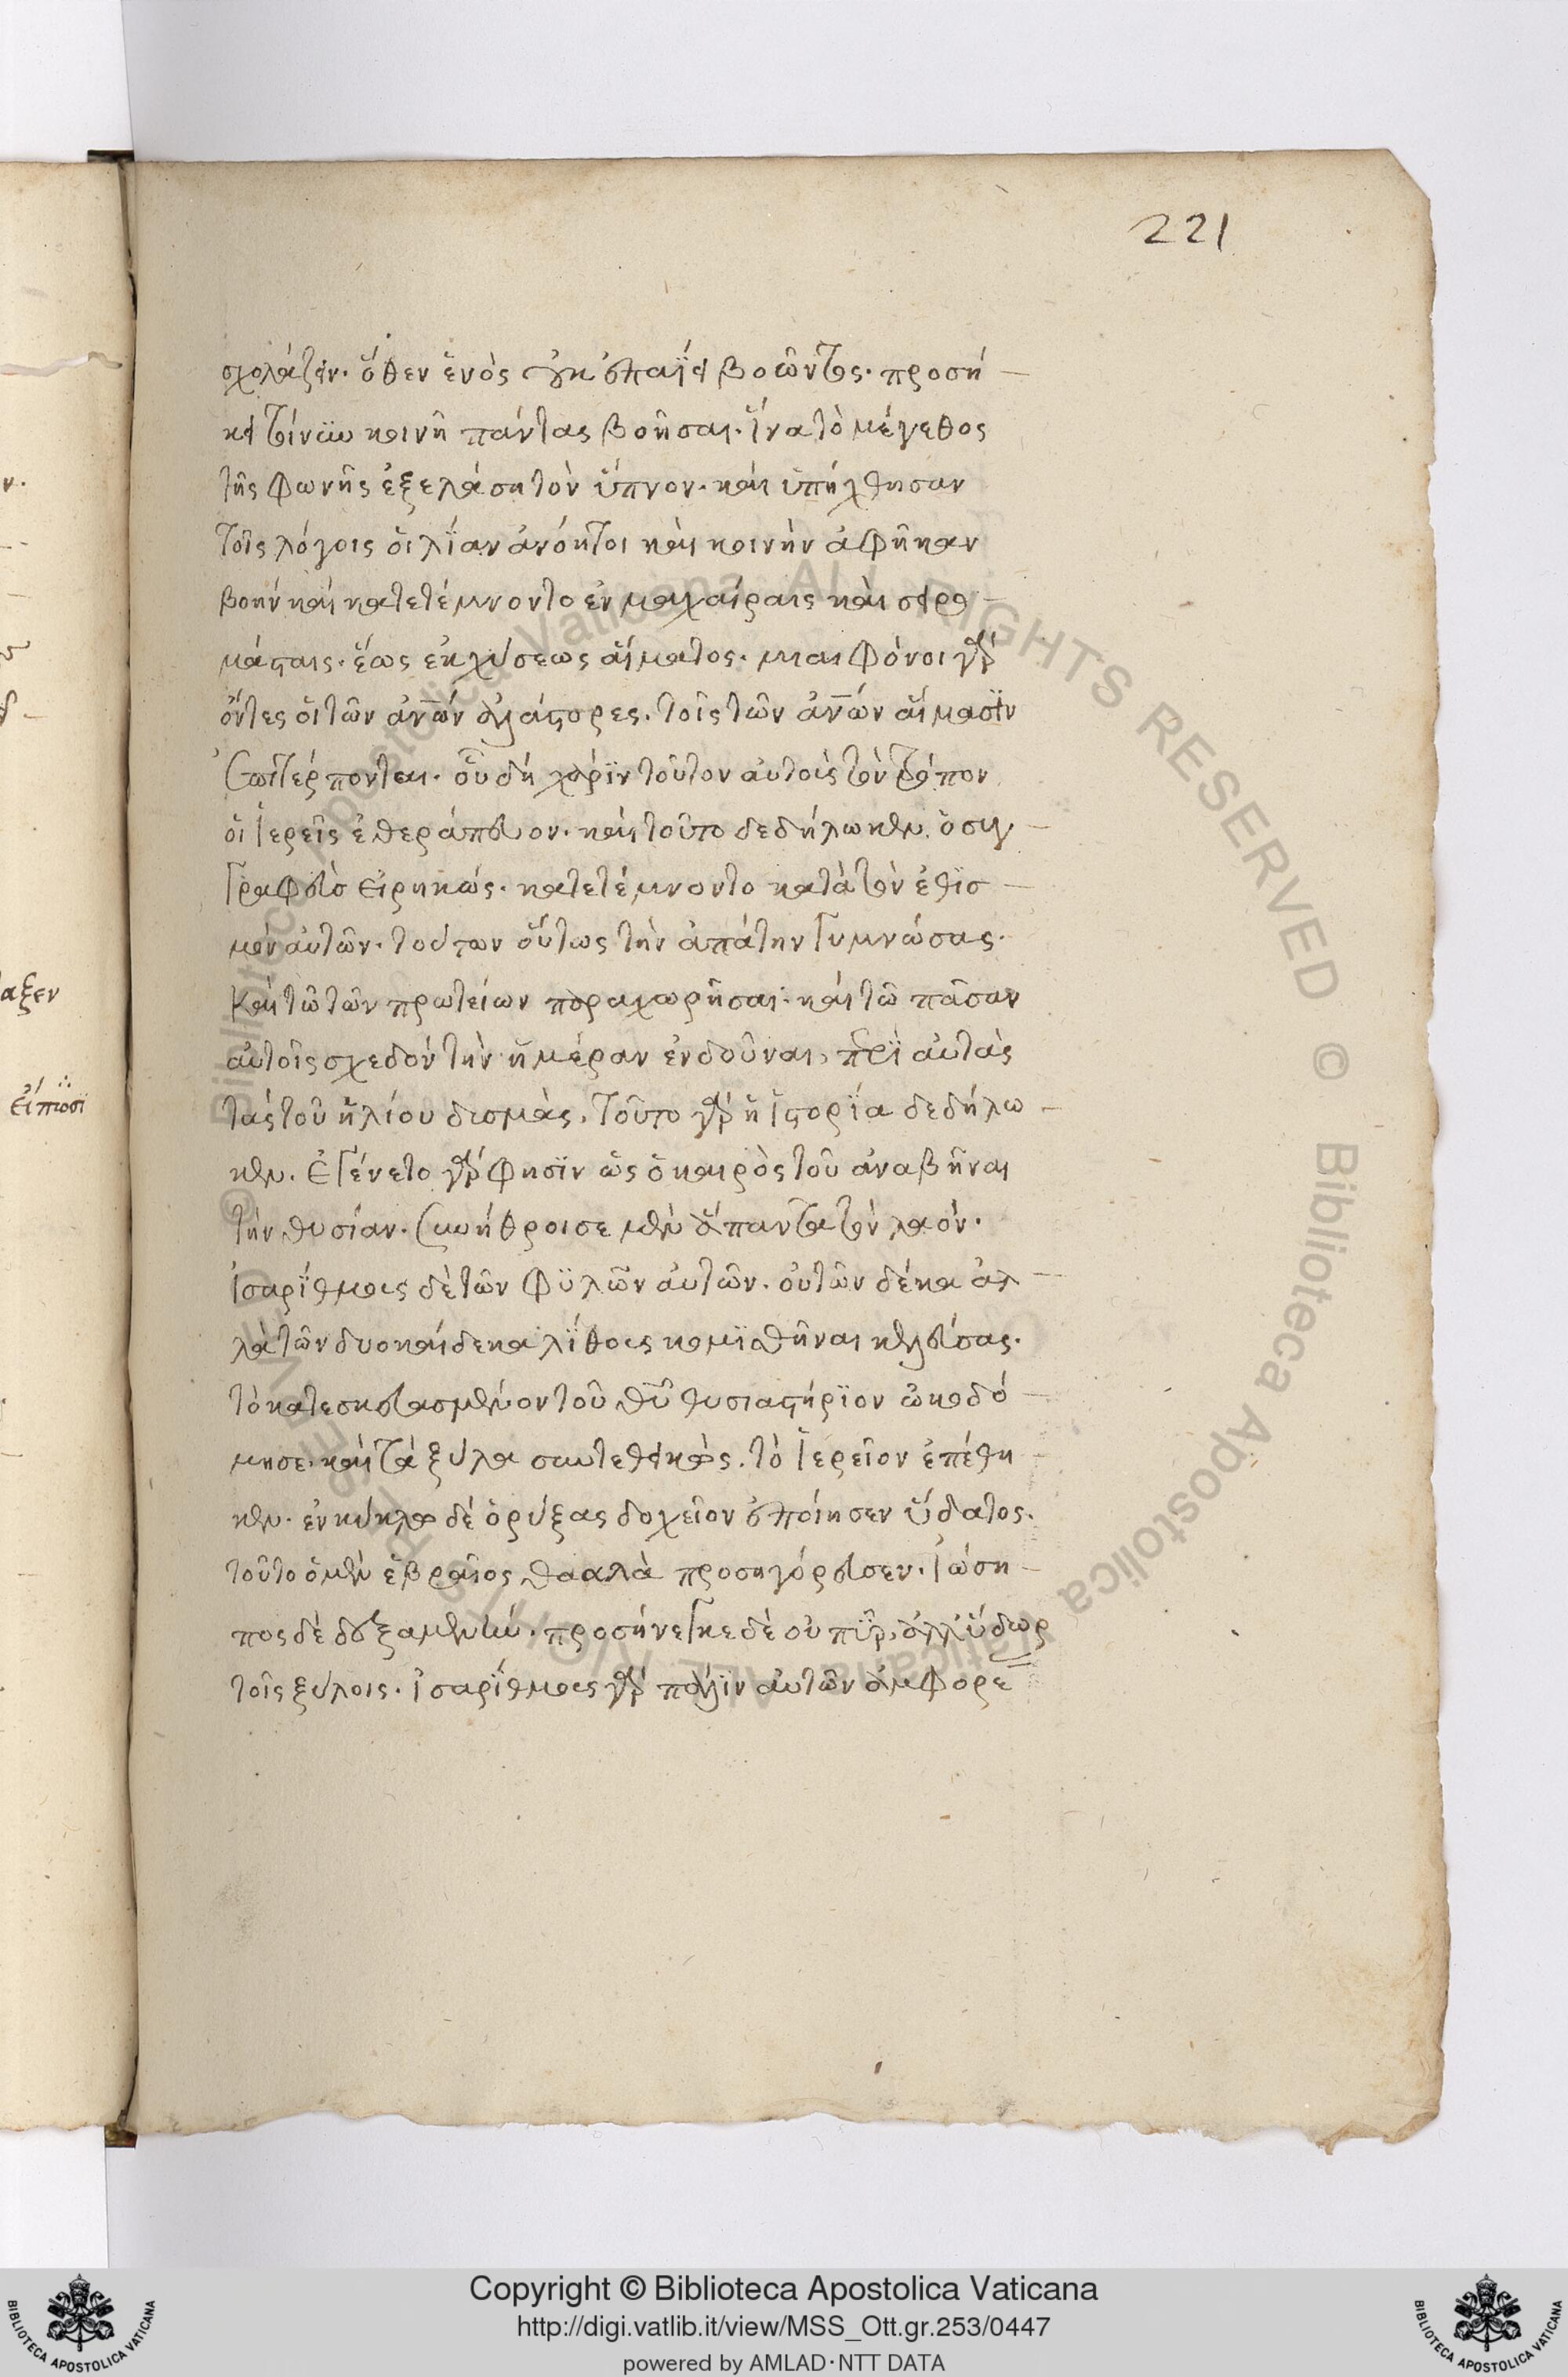 221
σχολάζειν. ὅθεν ἑνὸς οὐκ ἐπαΐει βοῶντος. προσή
κει τοίνυν κοινῇ πάντας βοῆσαι. ἵνα τὸ μέγεθος
τῆς φωνῆς ἐξελάσῃ τὸν ὕπνον. καὶ ὑπήχθησαν
τοῖς λόγοις οἱ λΐαν ἀνόητοι καὶ κοινὴν ἀφῆκαν
βοήν καὶ κατετέμνοντο ἐν μαχαίραις καὶ σειρο
μάσταις. ἕως ἐκχύσεως αἵματος. μιαιφόνοι γὰρ
ὄντες οἱ τῶν ἀνων ἀλάστορες. τοῖς τῶν ἀνων αἵμασϊν
ἐπιτέρπονται. οὗ δὴ χάρϊν τοῦτον αὐτοὺς τὸν τρόπον
οἱ ἱερεῖς ἐθεράπευον. καὶ τοῦτο δεδήλωκεν. ὁ συγ
γραφεὺς εἰρηκώς. κατετέμνοντο κατὰ τὸν ἐθϊσ
μὸν αὐτῶν. τούτων οὕτως τὴν ἀπάτην γυμνώσας.
καὶ τῶ τῶν πρωτείων παραχωρῆσαι. καὶ τῶ πᾶσαν
αὐτοῖς σχεδὸν τὴν ἡμέραν ἐνδοῦναι, περὶ αὐτὰς
τὰς τοῦ ἡλίου δυσμὰς. τοῦτο γὰρ ἡ ἱστορΐα δεδήλω
κεν. ἐγένετο γάρ φησϊν ὡς ὁ καιρὸς τοῦ ἀναβῆναι
τὴν θυσίαν. συνήθροισε μὲν ἅπαντα τὸν λαόν.
ἰσαρΐθμους δὲ τῶν φϋλῶν αὐτῶν. οὐ τῶν δέκα ἀλ
λὰ τῶν δυοκαίδεκα λΐθους κομϊσθῆναι κελεύσας.
τὸ κατεσκευασμένον τοῦ θυ θυσιαστήρϊον ὠκοδό
μησε. καὶ τὰ ξύλα συντεθεικὼς. τὸ ἱερεῖον ἐπέθη
κεν. ἐν κύκλω δὲ ὀρύξας δοχεῖον ἐποίησεν ὕδατος.
τοῦτο ὁ μὲν ἑβραῖος θααλὰ προσηγόρευσεν. ἰώση
πος δὲ δεξαμενήν. προσήνεγκε δὲ οὐ πῦρ, ἀλλ' ὕδωρ
τοῖς ξύλοις. ἰσαρΐθμους γὰρ πάλϊν αὐτῶν ἀμφορε
αξεν
Copyright © Biblioteca Apostolica Vaticana
http://digi.vatlib.it/view/MSS_Ott.gr.253/0447
powered by AMLAD·NTT DATA